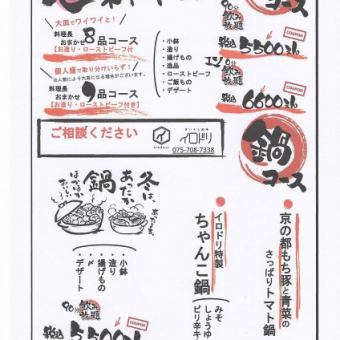 大皿でワイワイと！
料理長
おまかせ 8品コース
【お造り・ローストビーフ付】
個人盛で取り分けいらず！
料理長
おまかせ 9品コース
【お造り・ローストビーフ付き】
・小鉢
・造り
・揚げもの
・逸品
・ローストビーフ
・ご飯もの
・デザート
コース
90分
飲み放題
COUPON
税込
5500
分
飲み放題
COUPON
税込
6600
ご相談ください
イロドリ
075-708-7338
鍋
コース
冬は、
あったか
鍋
京の都もち豚と青菜の
さっぱりトマト鍋
イロドリ特製
ちゃんこ鍋
みそ
しょうゆ
ピリ辛キ
・小鉢
・造り
・揚げもの
・〆
・デザート
90分
飲み放題
COUPON
税込
5500